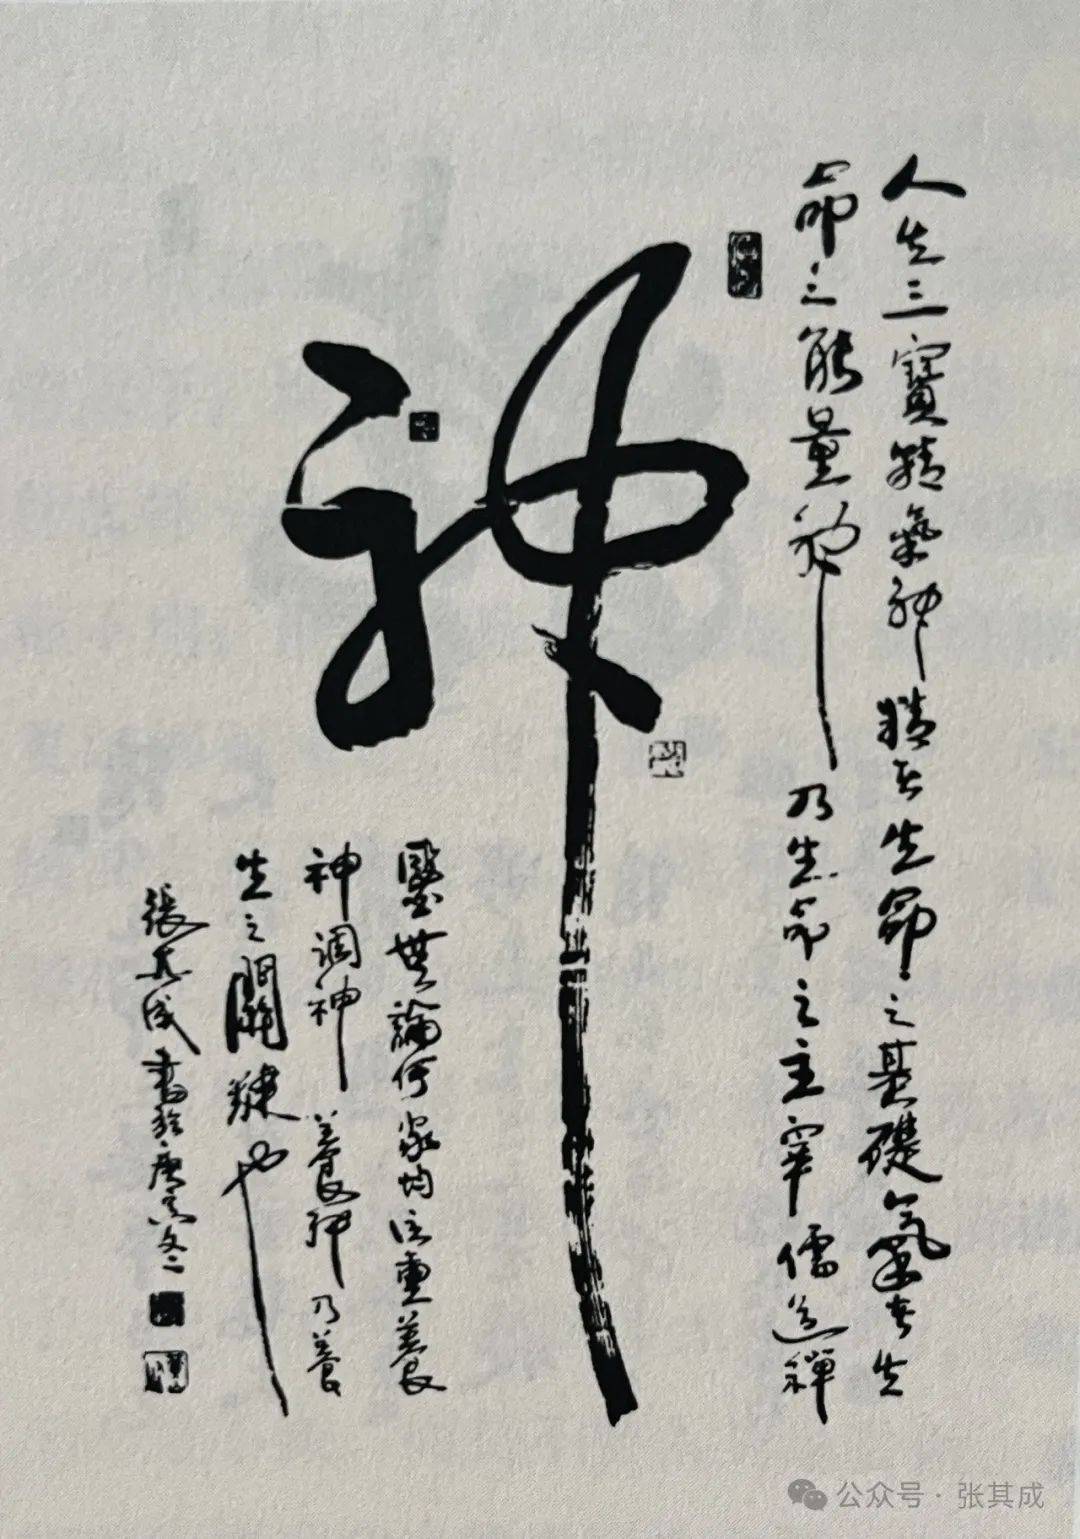 人生三寶精氣神精者生命之基礎氣者生
命之能量神乃生命之主宰儒道禪
神
醫無論何家均注重養
神調神養神乃養
生之關鍵也
張其成書於庚子冬
公众号·张其成